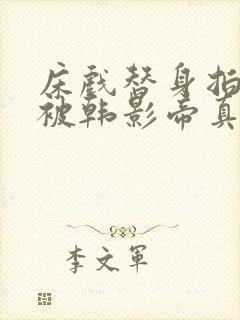 床戏替身拍
被韩影帝真
李文军